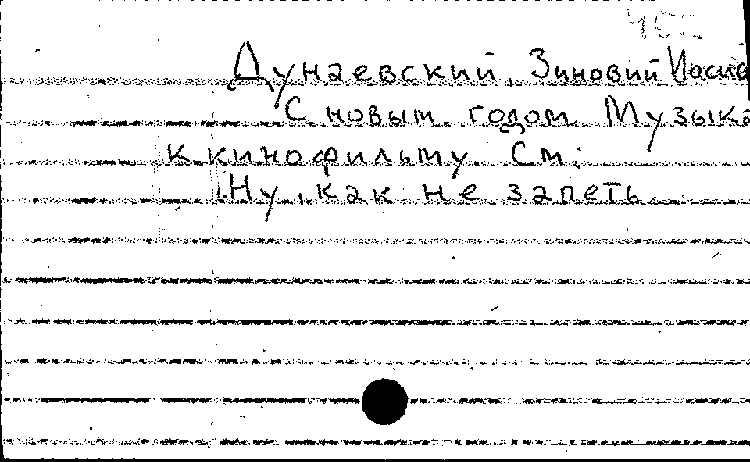 Дунаевский, Зиновий
С новым годом. Музыка
к кинофильму. См:
Ну, как не запеть